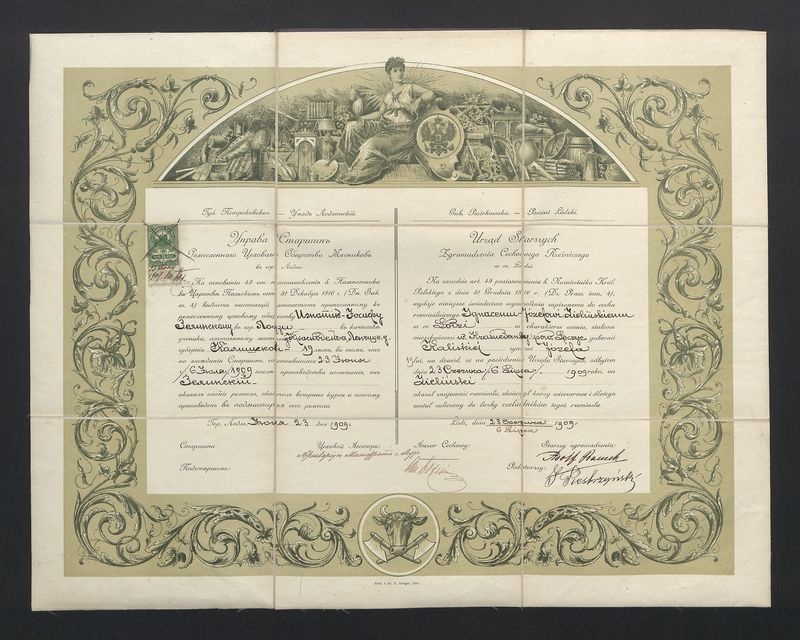 Губ. Петроковская — Уѣздъ Лодзинскій.
Управа Старшинъ
Ремесленнаго Цеховаго Общества Мясниковъ
въ гор. Лодзи.
На основаніи 49 ст. постановленія б. Намѣстника
въ Царствѣ Польскомъ отъ 31 Декабря 1816 г. (Дн. Зак.
т. 4) выдаетъ настоящій аттестатъ приписанному къ
ремесленному цеховому обществу Игнатію-Іосифу
Зелинскому въ гор. Лодзи въ качествѣ
ученика, постоянному жителю
губерніи Калишской 19 лѣтъ, въ томъ, что
на засѣданіи Старшинъ, состоявшемся 23 Іюня
/6 Іюля/ 1909 послѣ произведеннаго испытанія, онъ
Зелинскій
оказалъ знаніе ремесла, окончилъ вечерніе курсы и потому
произведенъ въ подмастерья сего ремесла.
Гор. Лодзь, Іюня 23 дня 1909 г.
Старшина: Цеховой Ассесоръ:
Подстаршина:
Gub. Piotrkowska — Powiat Łódzki.
Urząd Starszych
Zgromadzenia Cechowego Rzeźniczego
w m. Łodzi.
Na zasadzie art. 49 postanowienia b. Namiestnika Król.
Polskiego z dnia 31 Grudnia 1816 r. (Dz. Praw. tom. 4),
wydaje niniejsze świadectwo wyzwolenia zapisanemu do cechu
rzemieślniczego Ignacemu Józefowi Zielińskiemu
w m. Łodzi w charakterze ucznia, stałemu
mieszkańcowi gubernii
Kaliskiej Józefa
19 lat, na dowód, że na posiedzeniu Urzędu Starszych, odbytem
dnia 23 Czerwca /6 Lipca/ 1909 roku, on
Zieliński
okazał znajomość rzemiosła, skończył kursy wieczorowe i dlatego
został zaliczony do liczby czeladników tegoż rzemiosła.
Łódź, dnia 23 Czerwca 1909 r.
6 Lipca
Asesor Cechowy: Starszy zgromadzenia:
Podstarszy: